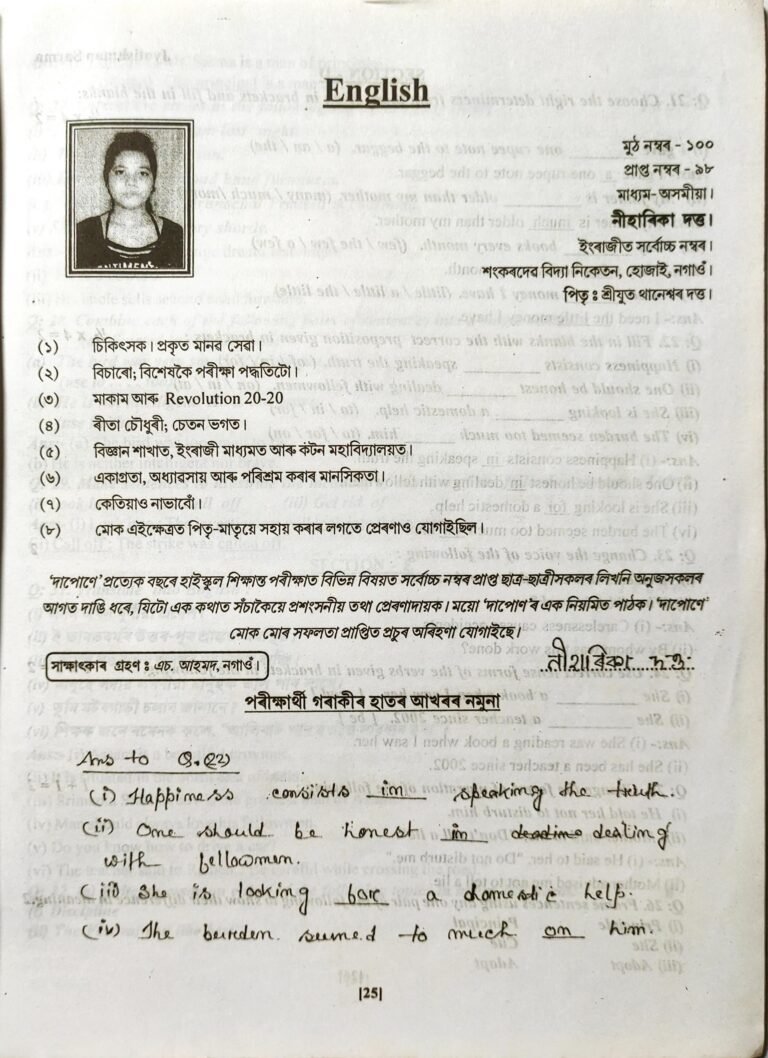 English
মুঠ নম্বৰ - ১০০
প্ৰাপ্ত নম্বৰ - ৯৮
মাধ্যম- অসমীয়া।
নীহাৰিকা দত্ত।
ইংৰাজীত সৰ্বোচ্চ নম্বৰ।
শংকৰদেৱ বিদ্যা নিকেতন, হোজাই, নগাওঁ।
পিতৃ : শ্ৰীযুত থানেশ্বৰ দত্ত।
(১) চিকিৎসক। প্ৰকৃত মানৱ সেৱা।
(২) বিচাৰো; বিশেষকৈ পৰীক্ষা পদ্ধতিটো।
(৩) মাকাম আৰু Revolution 20-20
(৪) ৰীতা চৌধুৰী; চেতন ভগত।
(৫) বিজ্ঞান শাখাত, ইংৰাজী মাধ্যমত আৰু কটন মহাবিদ্যালয়ত।
(৬) একাগ্ৰতা, অধ্যাৱসায় আৰু পৰিশ্ৰম কৰাৰ মানসিকতা।
(৭) কেতিয়াও নাভাবোঁ।
(৮) মোক এইক্ষেত্ৰত পিতৃ-মাতৃয়ে সহায় কৰাৰ লগতে প্ৰেৰণাও যোগাইছিল।
'দাপোণে' প্ৰত্যেক বছৰে হাইস্কুল শিক্ষান্ত পৰীক্ষাত বিভিন্ন বিষয়ত সৰ্বোচ্চ নম্বৰ প্ৰাপ্ত ছাত্ৰ-ছাত্ৰীসকলৰ লিখনি অনুজসকলৰ
আগত দাঙি ধৰে, যিটো এক কথাত সঁচাকৈয়ে প্ৰশংসনীয় তথা প্ৰেৰণাদায়ক। ময়ো 'দাপোণ'ৰ এক নিয়মিত পাঠক। 'দাপোণে'
মোক মোৰ সফলতা প্ৰাপ্তিত প্ৰচুৰ অৰিহণা যোগাইছে।
সাক্ষাৎকাৰ গ্ৰহণ : এচ. আহমদ, নগাওঁ।
নীহাৰিকা দত্ত
পৰীক্ষাৰ্থী গৰাকীৰ হাতৰ আখৰৰ নমুনা
Ans to Q. 22)
(i) Happiness consists in speaking the truth.
(ii) One should be honest in dealing
with fellowmen.
(iii) She is looking for a domestic help.
(iv) The burden seemed to much on him.
|25|